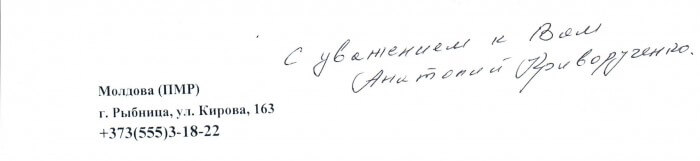 С уважением к Вам
Анатолий Криворученко.
Молдова (ПМР)
г. Рыбница, ул. Кирова, 163
+373(555)3-18-22